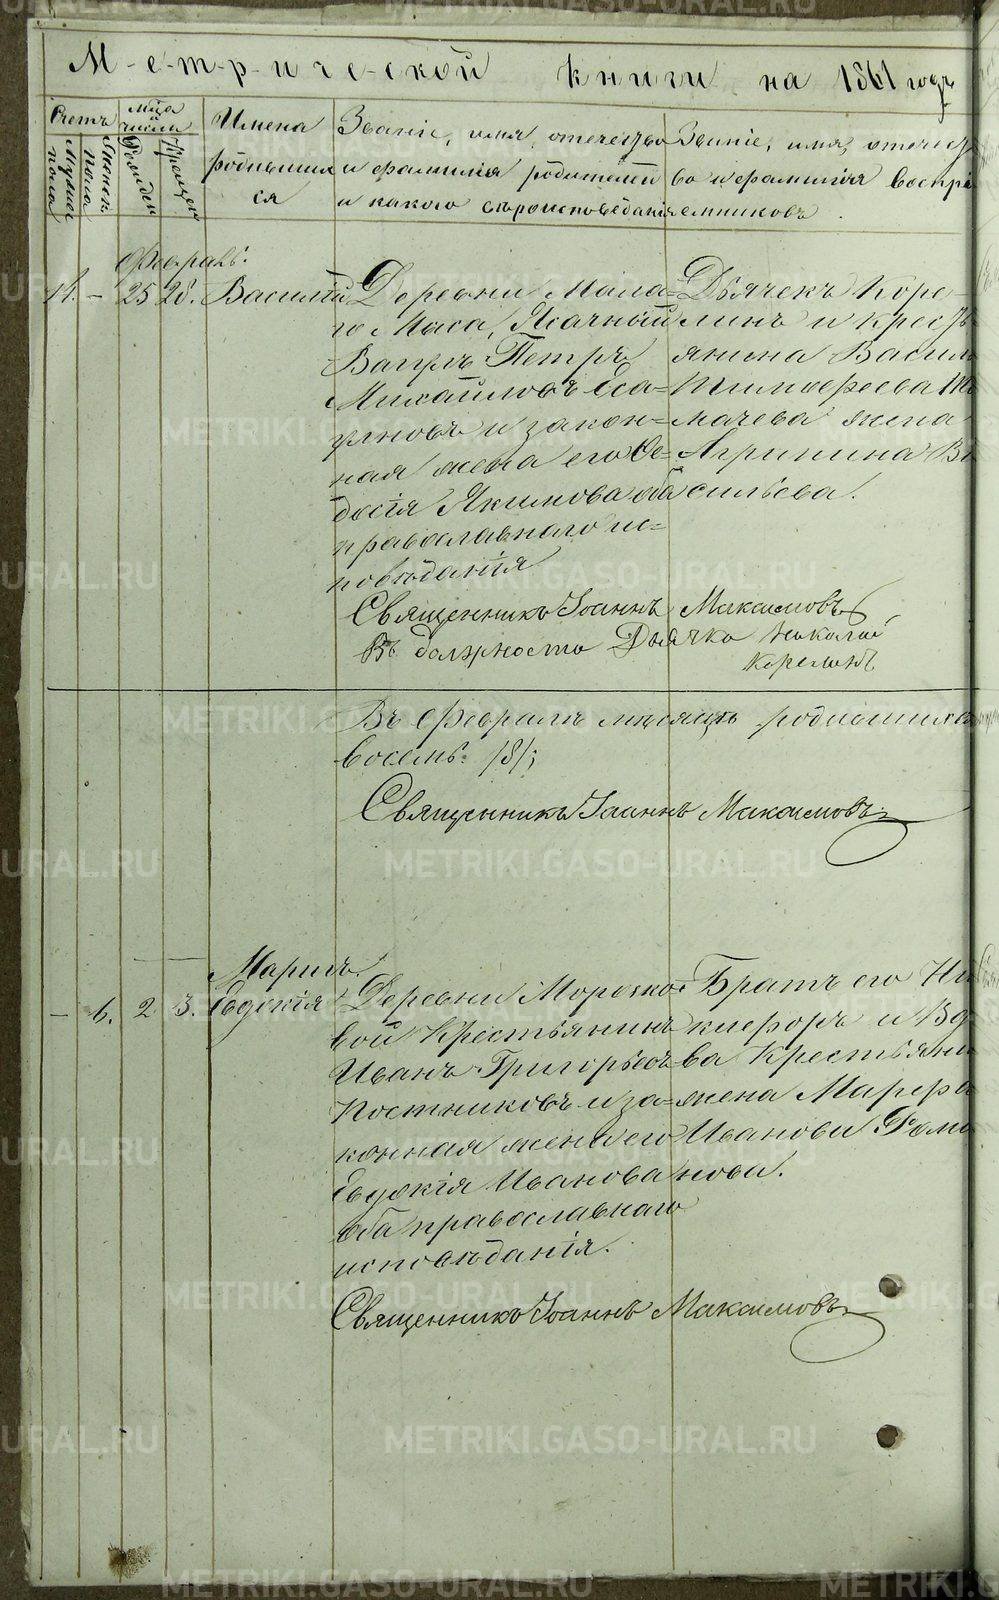 М-е-т-р-и-че-ской книги на 1861 годъ
Счетъ
Мужеска
пола
Женск.
пола
мца
и
числа
Рожден
Крещен
Имена
родивших
ся
Званіе, имя, отечество
и фамилія родителей
и какого вѣроисповѣданія
Званіе, имя, отечест
во и фамилія воспрі
емниковъ.
Февраль:
11. – 25 28. Василій
Деревни Мала-
го Маса, Ясачный
Вагулъ Петръ
Михайловъ Еса-
уловъ и закон-
ная жена его Ѳе-
досія Якимова оба
православнаго ис-
повѣданія
Дьячекъ Коре-
линъ и крест
янина Василь
Тимоѳеева
мачева жена
Агрипина Ва
сильева.
Священникъ Іоаннъ Максимовъ
Въ должности Дьячка Николай
Корелинъ
Въ Февралѣ мѣсяцѣ родившихся
восемь: /8/;
Священникъ Іоаннъ Максимовъ
Мартъ
– 6. 2 3. Евдокія
Деревни Морозко-
вой Крестьянинъ
Иванъ Григорьевъ
Постниковъ и за-
конная жена его
Евдокія Иванова
оба православнаго
исповѣданія.
Братъ его Ни
кифоръ и Вдо
ва Крестьяни
жена Марфа
Иванова Рома
нова.
Священникъ Іоаннъ Максимовъ
METRIKI.GASO-URAL.RU